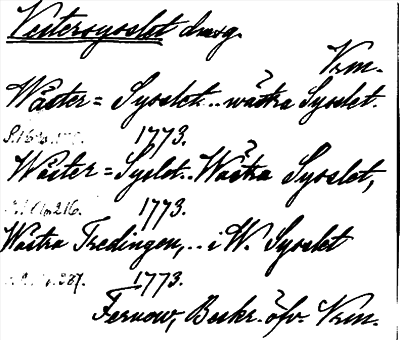 Vestersysslet drasg.
Vrm.
Wäster = Sysslet .. wästra Sysslet.
1773.
Wäster = Syslet .. Wästra Sysslet,
1773.
Wästra Tredingen, .. i W. Sysslet
1773.
Fernow, Beskr. öfv. Vrm.